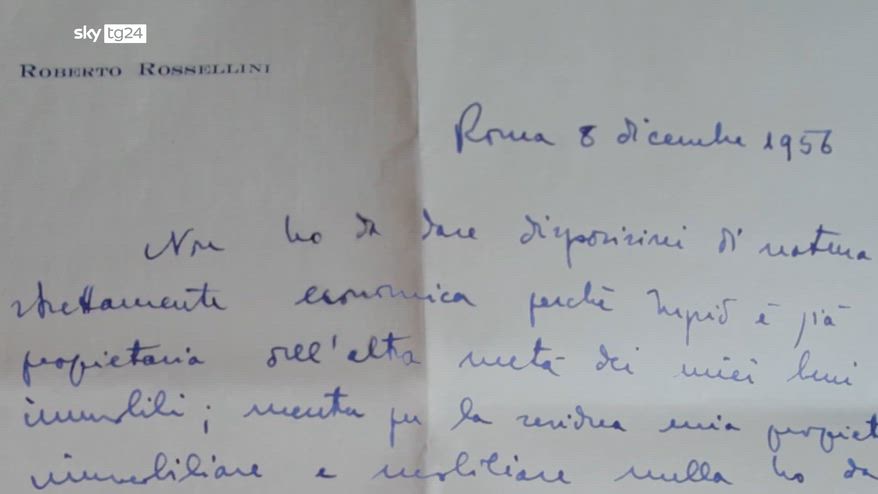 sky tg24
ROBERTO ROSSELLINI
Roma 8 dicembre 1956
Non ho da dare disposizioni di natura
strettamente economica perché Ingrid è già
proprietaria dell'altra metà dei miei beni
immobili; mentre per la residua mia propriet
immobiliare e mobiliare nulla ho da